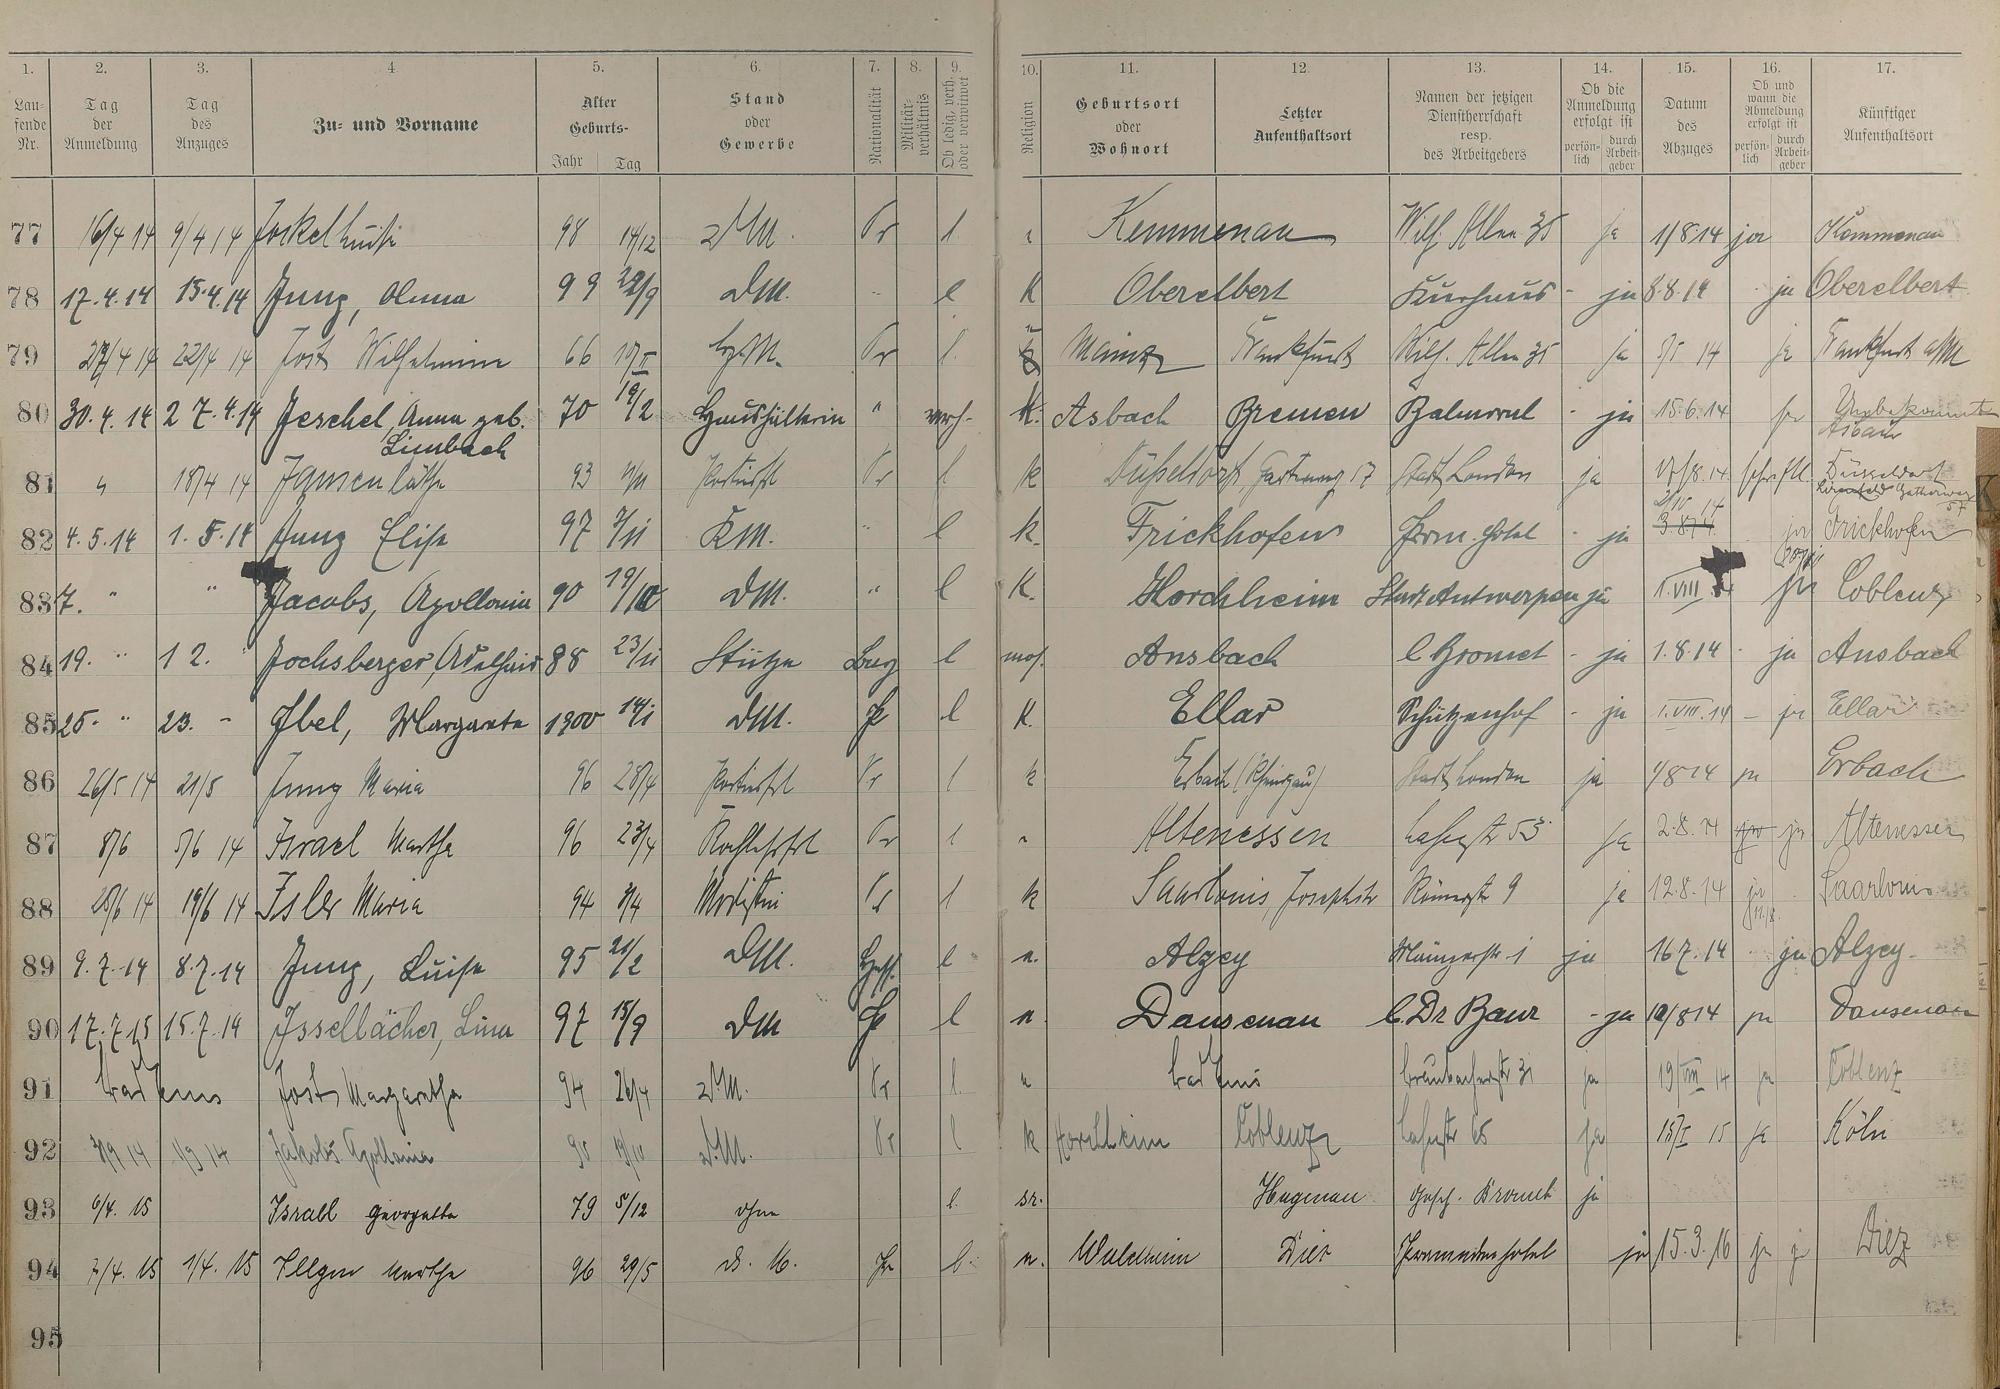 1. 2. 3. 4 5. 6. 7. 8. 9. 10. 11. 12. 13. 14. 15. 16. 17.
Lau-fende Nr. Tag der Anmeldung Tag des Anzuges Zu- und Vorname Alter Geburts- Jahr Tag Stand oder Gewerbe Nationalität Militär-verhältnis Ob ledig, verh. oder verwitwet Religion Geburtsort oder Wohnort Letzter Aufenthaltsort Namen der jetzigen Dienstherrschaft resp. des Arbeitgebers Ob die Anmeldung erfolgt ist persön-lich durch Arbeit-geber Datum des Abzuges Ob und wann die Abmeldung erfolgt ist persön-lich durch Arbeit-geber Künftiger Aufenthaltsort
77 16/4 14 9/4 14 98 14/12 Pr l Kemmenau Wilh. Allee 35 ja 1/8 14 ja Kemmenau
78 17.4.14 15.4.14 Jung, Anna 99 22/9 DM. " l K Oberelbert Kurhaus - ja 8.8.14 - ja Oberelbert
79 22/4 14 Jost Wilhelmine 66 Pr l. Mainz Frankfurt Wilh. Allee 35 ja 5/5 14 ja Frankfurt a/M
80 30.4.14 27.4.14 Jeschel, Anna geb. Limbach 70 19/2 Haushälterin " verh. K. Asbach Bremen Balmoral - ja 15.6.14 ja Unbekannt Asbach
81 " 18/4 14 Jansen Käthe 93 Pr l k Düsseldorf, 17 Stadt London ja schriftl. Düsseldorf 57
82 4.5.14 1.5.14 Jung Elise 97 7/11 KM. " l k. Frickhofen Hotel - ja 3.8.14 ja Frickhofen
83 7. " " Jacobs, Apollonia 90 19/10 DM. " l K. Horchheim Stadt Antwerpen ja 1.VIII.14 ja Coblenz
84 19. " 12. " Jochsberger, Adelheid 88 23/11 Stütze l mos. Ansbach Bromet - ja 1.8.14 - ja Ansbach
85 25. " 23. - Ibel, Margarete 1900 14/1 DM. Pr l K. Ellar Schützenhof - ja 1.VIII.14 - ja Ellar
86 26/5 14 21/5 Jung Maria 96 28/4 Pr l k Erbach (Rheingau) Stadt London ja 1/8 14 ja Erbach
87 8/6 5/6 14 Israel Martha 96 23/4 Pr l Altenessen Lahnstr 53 ja 2.8.14 ja Altenessen
88 19/6 14 Isler Maria 94 Modistin Pr l k Saarlouis, Josephstr Römerstr 9 ja 12.8.14 ja 11./8. Saarlouis
89 9.7.14 8.7.14 Jung, Luise 95 21/2 DM. Hess. l e. Alzey Mainzerstr 1 ja 16.7.14 - ja Alzey.
90 17.7.15 15.7.14 Isselbächer, Lina 97 15/9 DM Pr l e. Dausenau Dr Baur - ja 10/8 14 ja Dausenau
91 Bad Ems Jost Margaretha 94 26/4 DM. Pr l. Bad Ems 31 ja 19/VIII 14 ja Coblenz
92 3/9 14 1/9 14 Jakobs Apollonia 90 19/10 D.M. Pr l k Horchheim Coblenz Lahnstr 65 ja 15 ja Köln
93 6/4. 15 Israel Georgette 79 5/12 ohne l. isr. Hagenau Gesch. Bromet ja
94 7/4. 15 1/4. 15 Illgen Martha 96 29/5 D. M. Pr l. e. Waldheim Diez Fremdenhotel ja 15.3.16 ja ja Diez
95